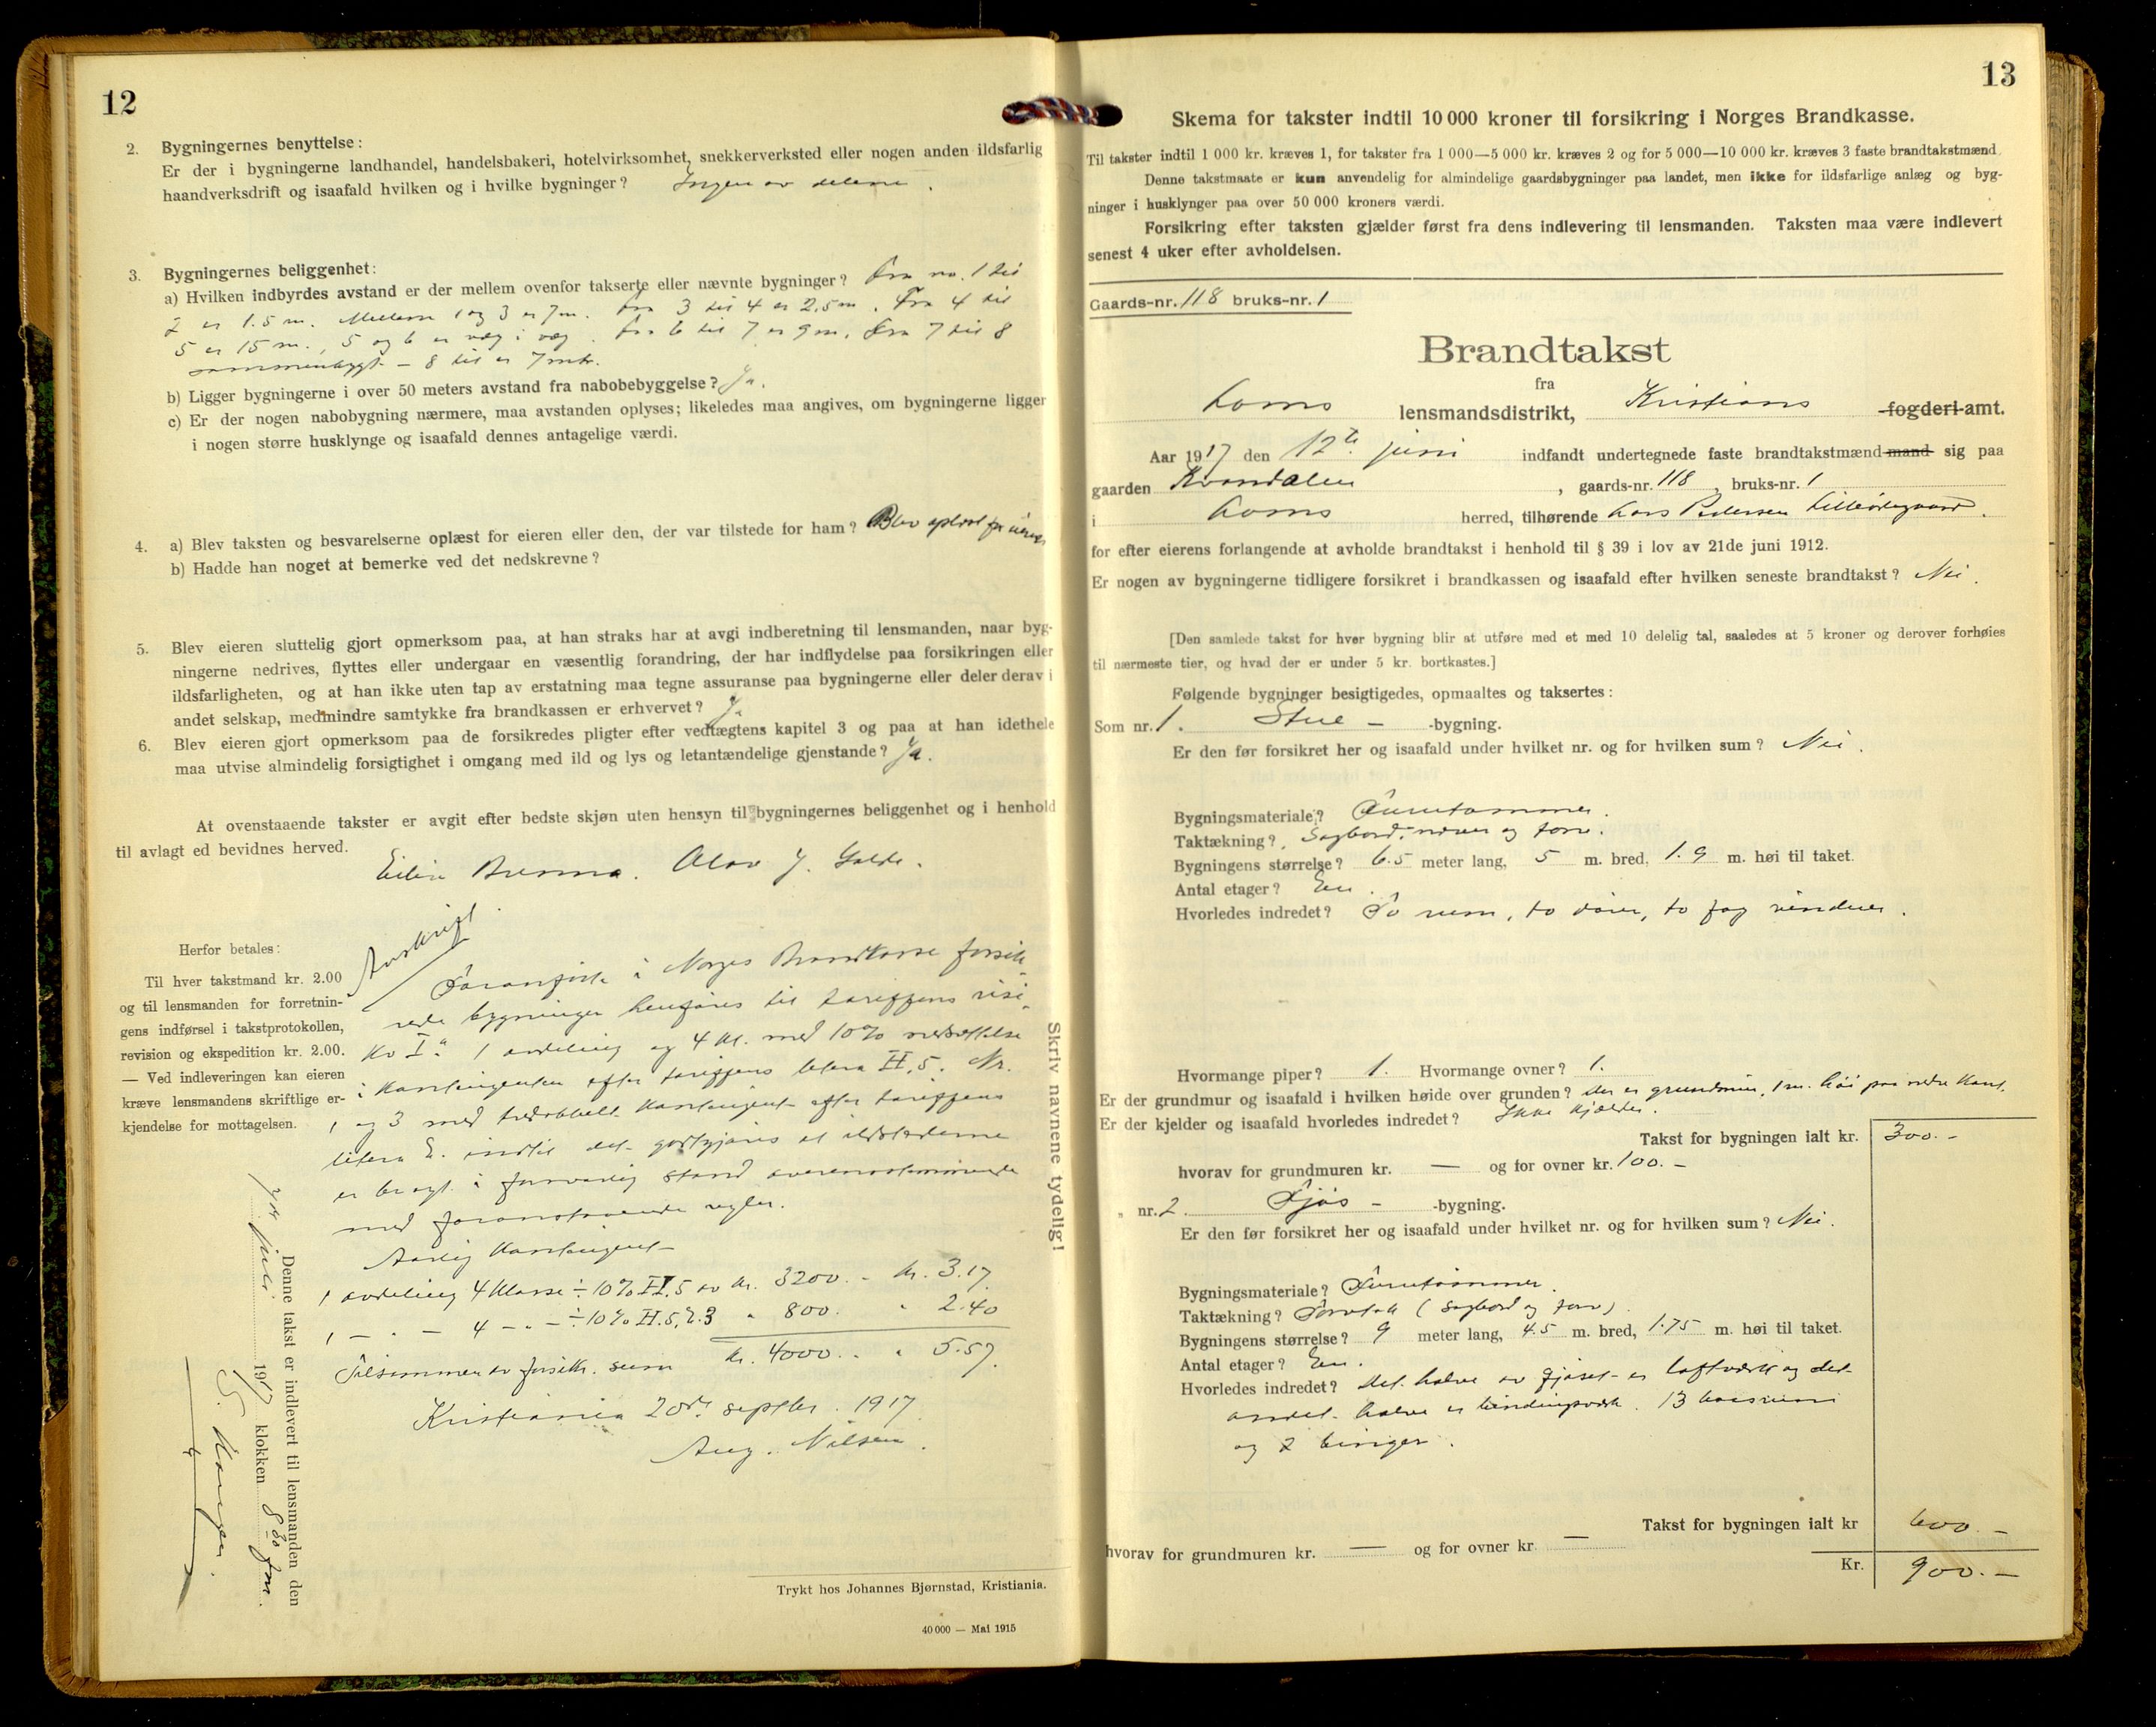 12
2. Bygningernes benyttelse:
Er der i bygningerne landhandel, handelsbakeri, hotelvirksomhet, snekkerverksted eller nogen anden ildsfarlig
haandverksdrift og isaafald hvilken og i hvilke bygninger? Ingen av delene.
3. Bygningernes beliggenhet:
a) Hvilken indbyrdes avstand er der mellem ovenfor takserte eller nævnte bygninger? Fra no. 1 til
2 er 1.5 m. Mellem 1 og 3 er 7 m. fra 3 til 4 er 2,5 m. Fra 4 til
5 er 15 m., 5 og 6 er væg i væg. fra 6 til 7 er 9 m. Fra 7 til 8
sammenbygt – 8 til er 7 mtr.
b) Ligger bygningerne i over 50 meters avstand fra nabobebyggelse? Ja.
c) Er der nogen nabobygning nærmere, maa avstanden oplyses; likeledes maa angives, om bygningerne ligger
i nogen større husklynge og isaafald dennes antagelige værdi.
4. a) Blev taksten og besvarelserne oplæst for eieren eller den, der var tilstede for ham? Blev oplæst for eieren
b) Hadde han noget at bemerke ved det nedskrevne?
5. Blev eieren sluttelig gjort opmerksom paa, at han straks har at avgi indberetning til lensmanden, naar byg-
ningerne nedrives, flyttes eller undergaar en væsentlig forandring, der har indflydelse paa forsikringen eller
ildsfarligheten, og at han ikke uten tap av erstatning maa tegne assuranse paa bygningerne eller deler derav i
andet selskap, medmindre samtykke fra brandkassen er erhvervet? Ja
6. Blev eieren gjort opmerksom paa de forsikredes pligter efter vedtægtens kapitel 3 og paa at han idethele
maa utvise almindelig forsigtighet i omgang med ild og lys og letantændelige gjenstande? Ja.
At ovenstaaende takster er avgit efter bedste skjøn uten hensyn til bygningernes beliggenhet og i henhold
til avlagt ed bevidnes herved.
Brenna. Olav J. Galde.
Herfor betales:
Til hver takstmand kr. 2.00
og til lensmanden for forretnin-
gens indførsel i takstprotokollen,
revision og ekspedition kr. 2.00.
— Ved indleveringen kan eieren
kræve lensmandens skriftlige er-
kjendelse for mottagelsen.
Avskrift
Foranførte i Norges Brandkasse forsik-
rede bygninger henføres til tariffens risi-
ko I.a 1 avdeling og 4 kl. med 10% nedsættelse
i kontingenten efter tariffens litera H. 5. Nr.
1 og 3 med tredobbelt kontingent efter tariffens
litera E. indtil det godtgjøres at ildstederne
er bragt i forsvarlig stand overensstemmende
med foranstaaende regler.
Aarlig kontingent
1 avdeling 4 klasse ÷ 10% H.5 av kr. 3200. – kr. 3.17
1 – " – 4 – " – ÷ 10% H.5, E.3 " 800. " 2.40
Tilsammen av forsikr. sum kr. 4000. " 5.57.
Kristiania 20de septbr. 1917.
Aug. Nilsen.
Denne takst er indlevert til lensmanden den
7de juli 1917 klokken 8 30 fm.
Skriv navnene tydelig!
Trykt hos Johannes Bjørnstad, Kristiania.
40 000 — Mai 1915
13
Skema for takster indtil 10 000 kroner til forsikring i Norges Brandkasse.
Til takster indtil 1 000 kr. kræves 1, for takster fra 1 000—5 000 kr. kræves 2 og for 5 000—10 000 kr. kræves 3 faste brandtakstmænd.
Denne takstmaate er kun anvendelig for almindelige gaardsbygninger paa landet, men ikke for ildsfarlige anlæg og byg-
ninger i husklynger paa over 50 000 kroners værdi.
Forsikring efter taksten gjælder først fra dens indlevering til lensmanden. Taksten maa være indlevert
senest 4 uker efter avholdelsen.
Gaards-nr. 118 bruks-nr. 1
Brandtakst
fra
Loms lensmandsdistrikt, Kristians fogderi-amt.
Aar 1917 den 12te juni indfandt undertegnede faste brandtakstmænd-mand sig paa
gaarden Kvandalen, gaards-nr. 118, bruks-nr. 1
i Loms herred, tilhørende Lars Pedersen Lilleødegaard.
for efter eierens forlangende at avholde brandtakst i henhold til § 39 i lov av 21de juni 1912.
Er nogen av bygningerne tidligere forsikret i brandkassen og isaafald efter hvilken seneste brandtakst? Nei.
[Den samlede takst for hver bygning blir at utføre med et med 10 delelig tal, saaledes at 5 kroner og derover forhøies
til nærmeste tier, og hvad der er under 5 kr. bortkastes.]
Følgende bygninger besigtigedes, opmaaltes og taksertes:
Som nr. 1. Stue – -bygning.
Er den før forsikret her og isaafald under hvilket nr. og for hvilken sum? Nei.
Bygningsmateriale? Furutømmer.
Taktækning? Sagbord, næver og torv.
Bygningens størrelse? 6.5 meter lang, 5 m. bred, 1.9 m. høi til taket.
Antal etager? Een.
Hvorledes indredet? To rum, to dører, to fag vinduer.
Hvormange piper? 1. Hvormange ovner? 1.
Er der grundmur og isaafald i hvilken høide over grunden? Der er grundmur, 1 m. høi paa nedre kant.
Er der kjelder og isaafald hvorledes indredet? Ikke kjælder.
Takst for bygningen ialt kr. 300. –
hvorav for grundmuren kr. — og for ovner kr. 100. –
" nr. 2. Fjøs – -bygning.
Er den før forsikret her og isaafald under hvilket nr. og for hvilken sum? Nei.
Bygningsmateriale? Furutømmer.
Taktækning? Torvtak (sagbord og torv).
Bygningens størrelse? 9 meter lang, 4.5 m. bred, 1.75 m. høi til taket.
Antal etager? Een.
Hvorledes indredet? Det halve av fjøset er laftværk og det
andet halve er bindingsværk. 13 baasrum
og 2 binger.
Takst for bygningen ialt kr 600. –
hvorav for grundmuren kr. — og for ovner kr —
Kr. 900. –